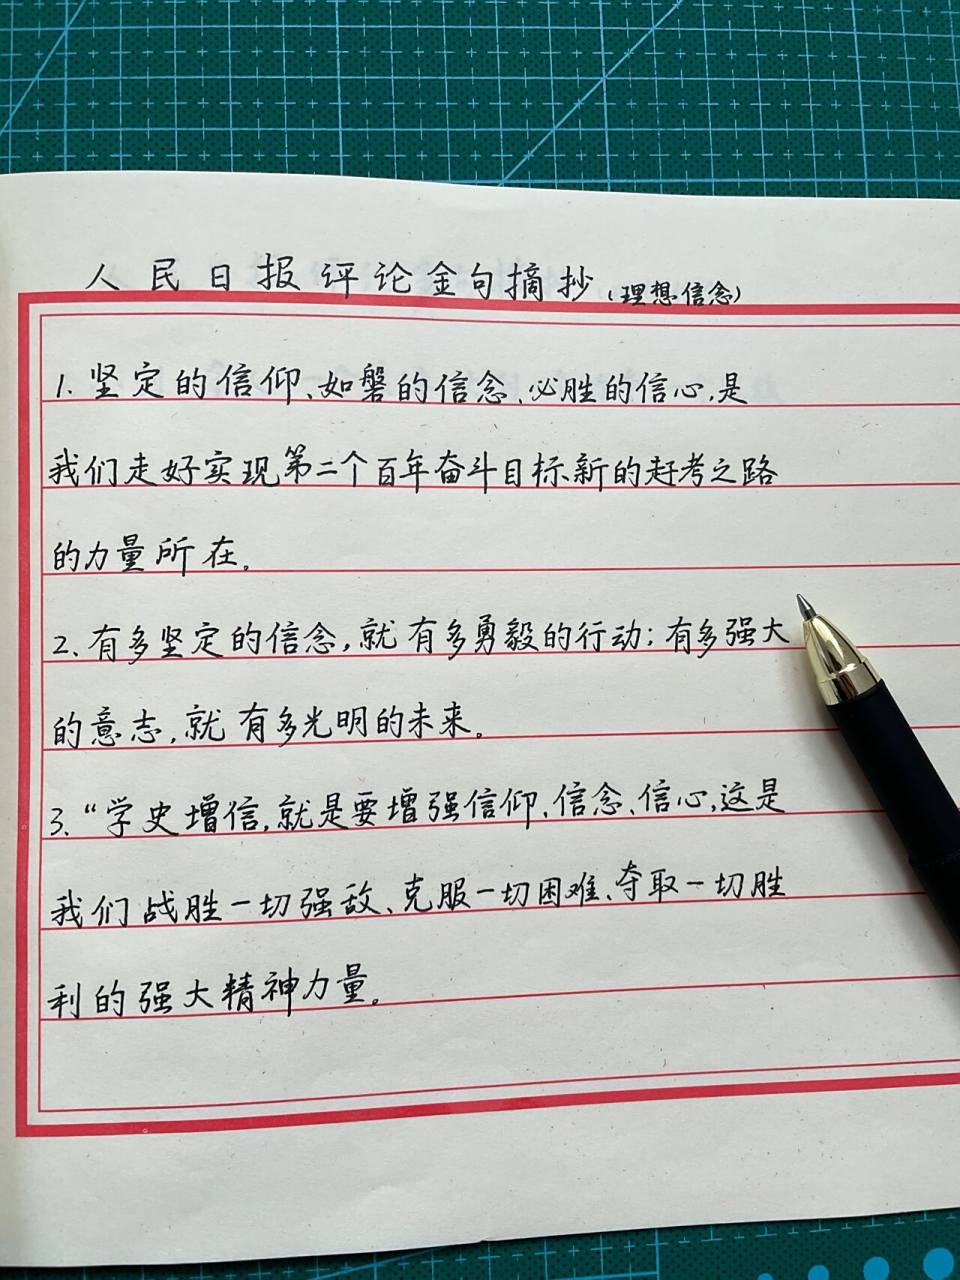 人民日报评论金句摘抄（理想信念）
1. 坚定的信仰、如磐的信念、必胜的信心,是
我们走好实现第二个百年奋斗目标新的赶考之路
的力量所在。
2. 有多坚定的信念,就有多勇毅的行动;有多强大
的意志,就有多光明的未来。
3. “学史增信,就是要增强信仰、信念、信心,这是
我们战胜一切强敌、克服一切困难、夺取一切胜
利的强大精神力量。